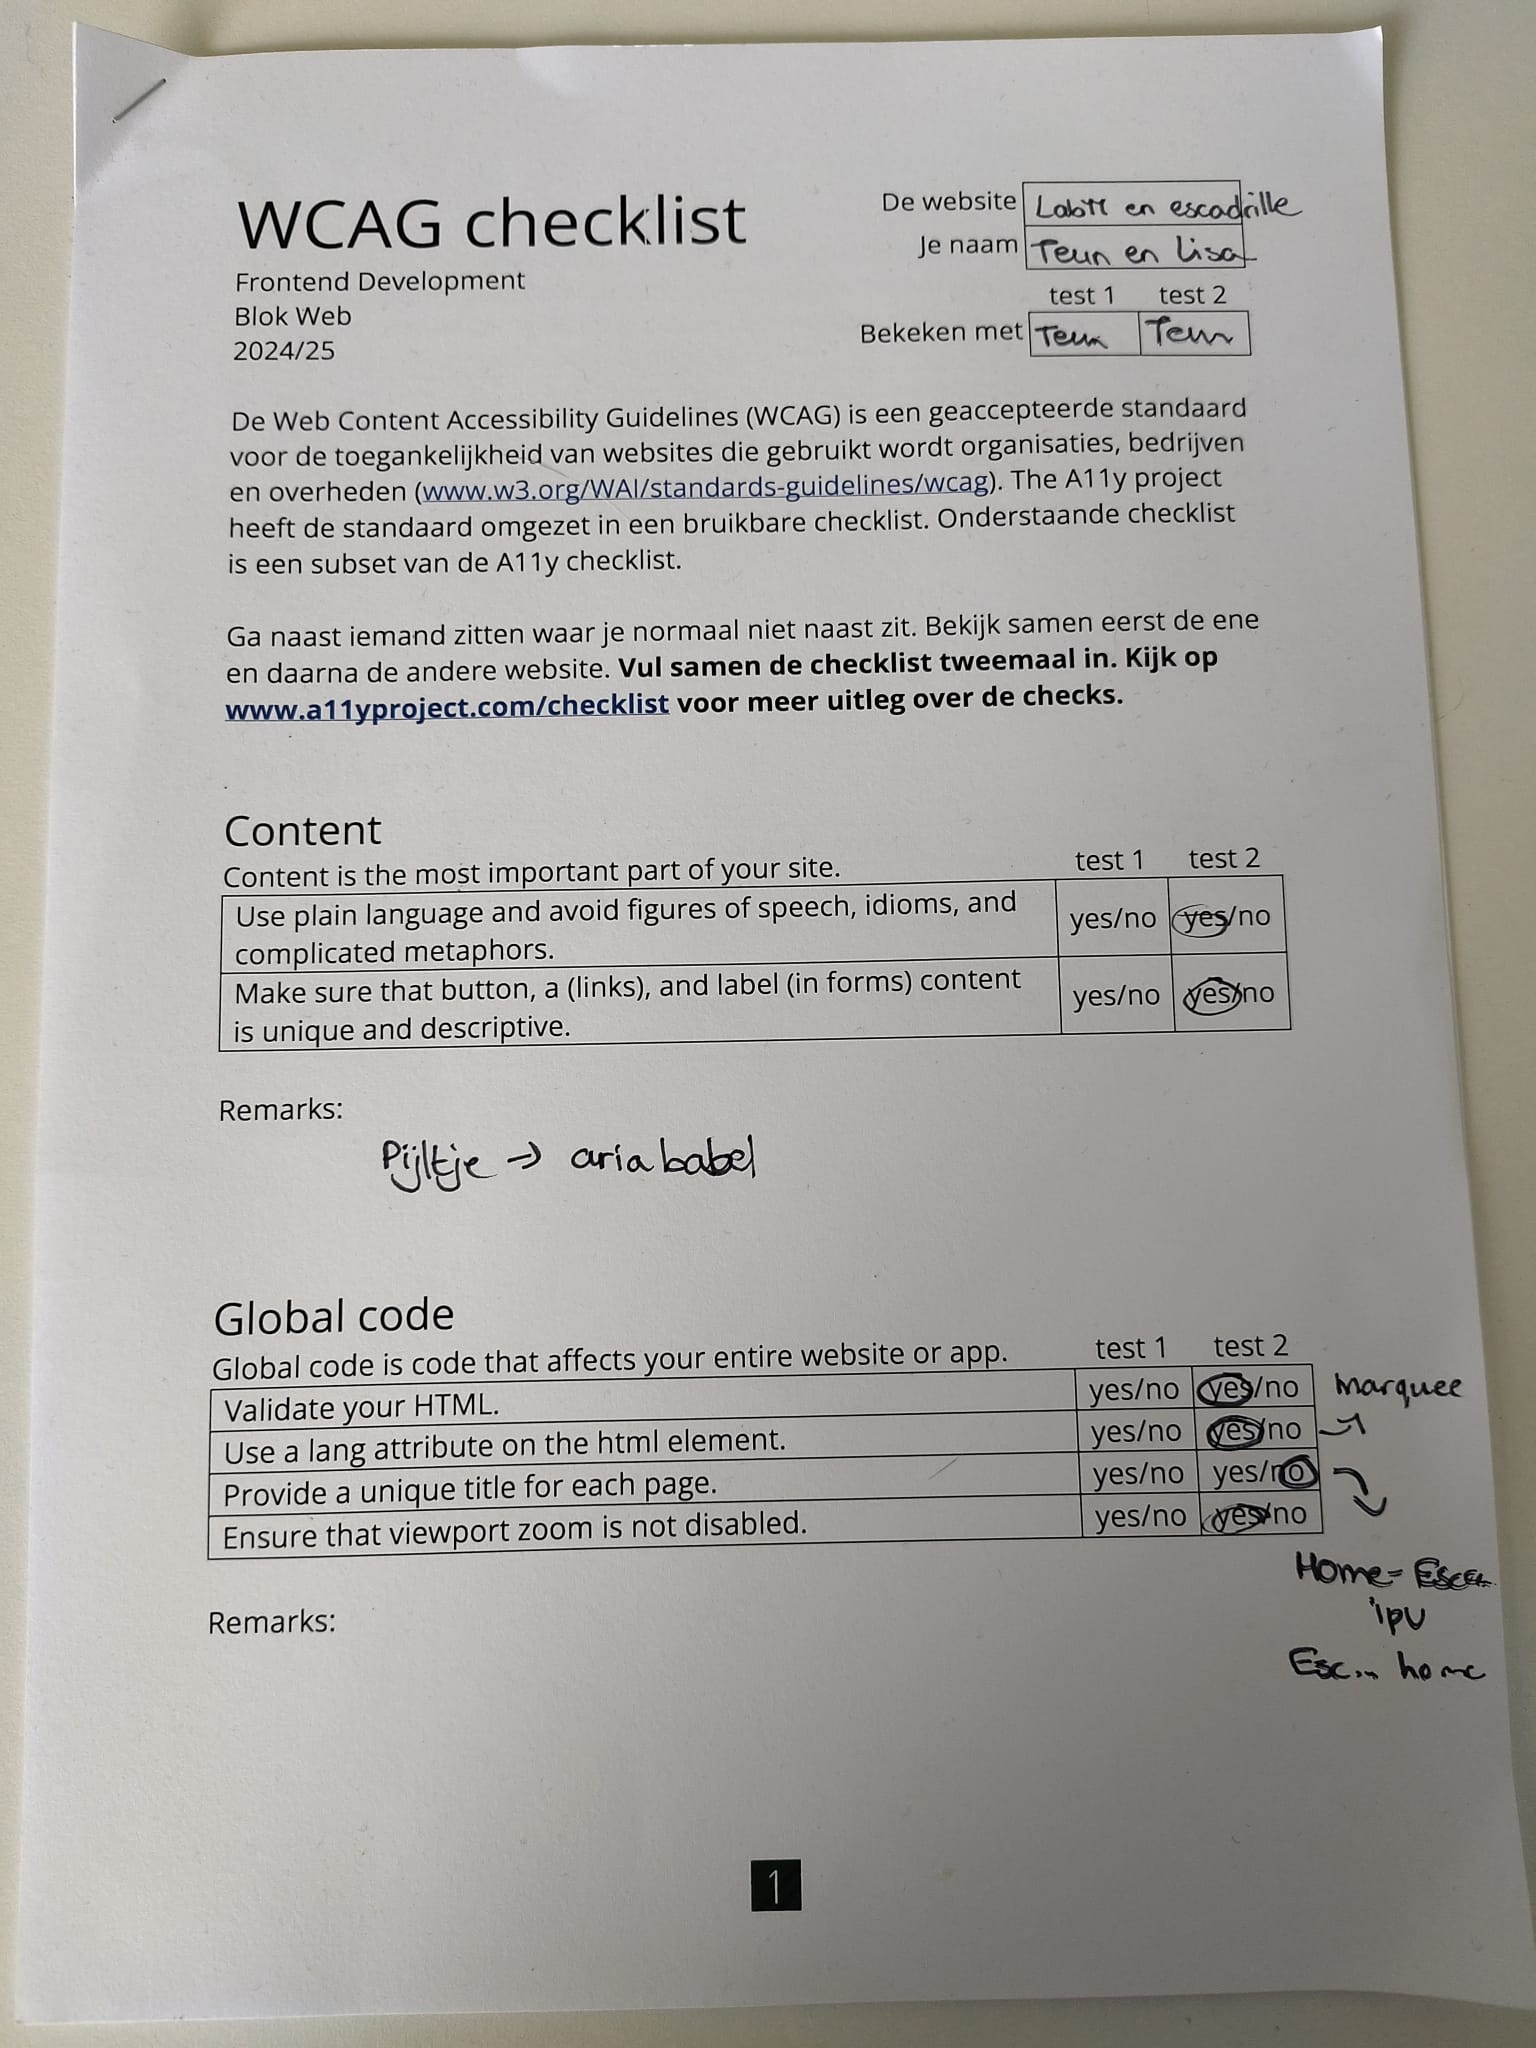 WCAG checklist
Frontend Development
Blok Web
2024/25
De website en escadrille
Je naam Teun en Lisa
test 1 test 2
Bekeken met Teun Teun
De Web Content Accessibility Guidelines (WCAG) is een geaccepteerde standaard
voor de toegankelijkheid van websites die gebruikt wordt organisaties, bedrijven
en overheden (www.w3.org/WAI/standards-guidelines/wcag). The A11y project
heeft de standaard omgezet in een bruikbare checklist. Onderstaande checklist
is een subset van de A11y checklist.
Ga naast iemand zitten waar je normaal niet naast zit. Bekijk samen eerst de ene
en daarna de andere website. Vul samen de checklist tweemaal in. Kijk op
www.a11yproject.com/checklist voor meer uitleg over de checks.
Content
Content is the most important part of your site. test 1 test 2
Use plain language and avoid figures of speech, idioms, and
complicated metaphors. yes/no yes/no
Make sure that button, a (links), and label (in forms) content
is unique and descriptive. yes/no yes/no
Remarks:
Pijltje → aria babel
Global code
Global code is code that affects your entire website or app. test 1 test 2
Validate your HTML. yes/no yes/no marquee
Use a lang attribute on the html element. yes/no yes/no
Provide a unique title for each page. yes/no yes/no
Ensure that viewport zoom is not disabled. yes/no yes/no
Home=
ipv
Esc... home
Remarks:
1